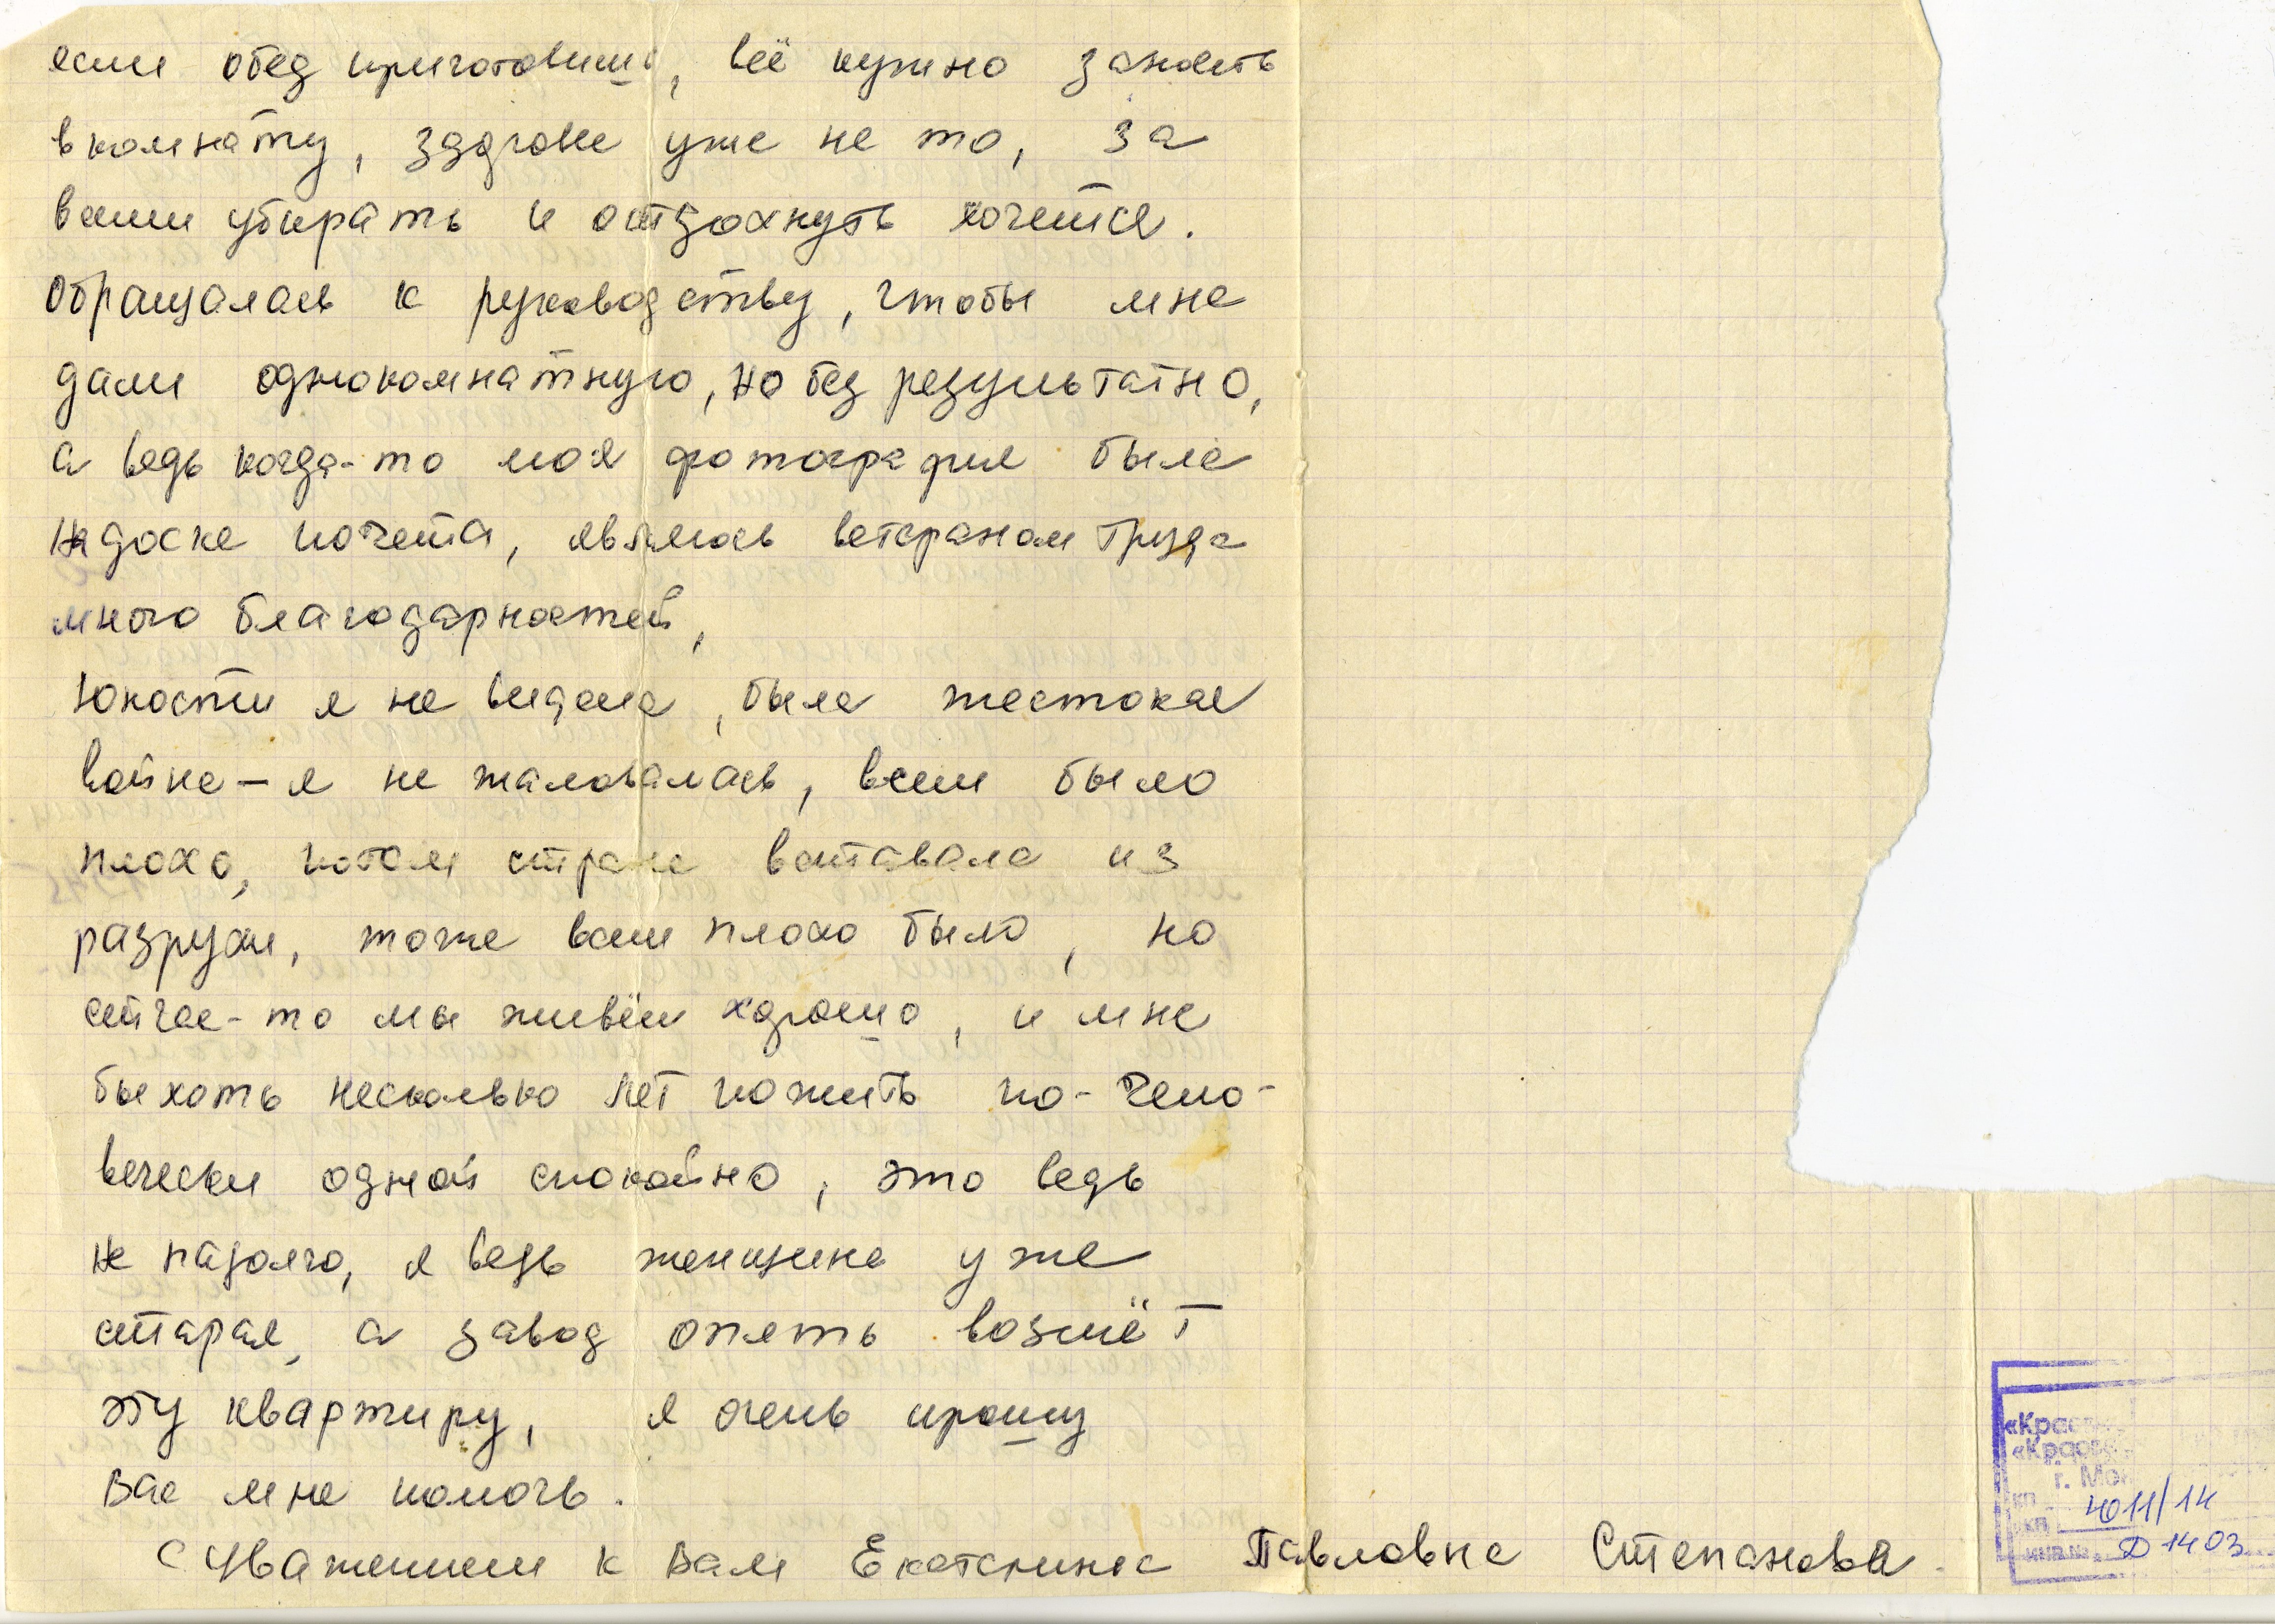 если обед приготовишь, всё нужно заность
в комнату, здровье уже не то, за
всеми убирать и отдохнуть хочется.
Обращалась к руководству, чтобы мне
дали однокомнатную, но без результатно,
а ведь когда-то моя фотография была
на доске почета, являюсь ветераном труда
много благодарностей,
Юности я не видела, была жестокая
война – я не жаловалась, всем было
плохо, потом страна вставала из
разрухи, тоже всем плохо было, но
сейчас-то мы живём хорошо, и мне
бы хоть несколько лет пожить по-чело-
вечески одной спокойно, это ведь
не надолго, я ведь женщина уже
старая, а завод опять возмёт
эту квартиру, я очень прошу
Вас мне помочь.
С уважением к Вам Екатерина Павловна Степанова.
КП 4011/14
ИНВ.№ Д 1403